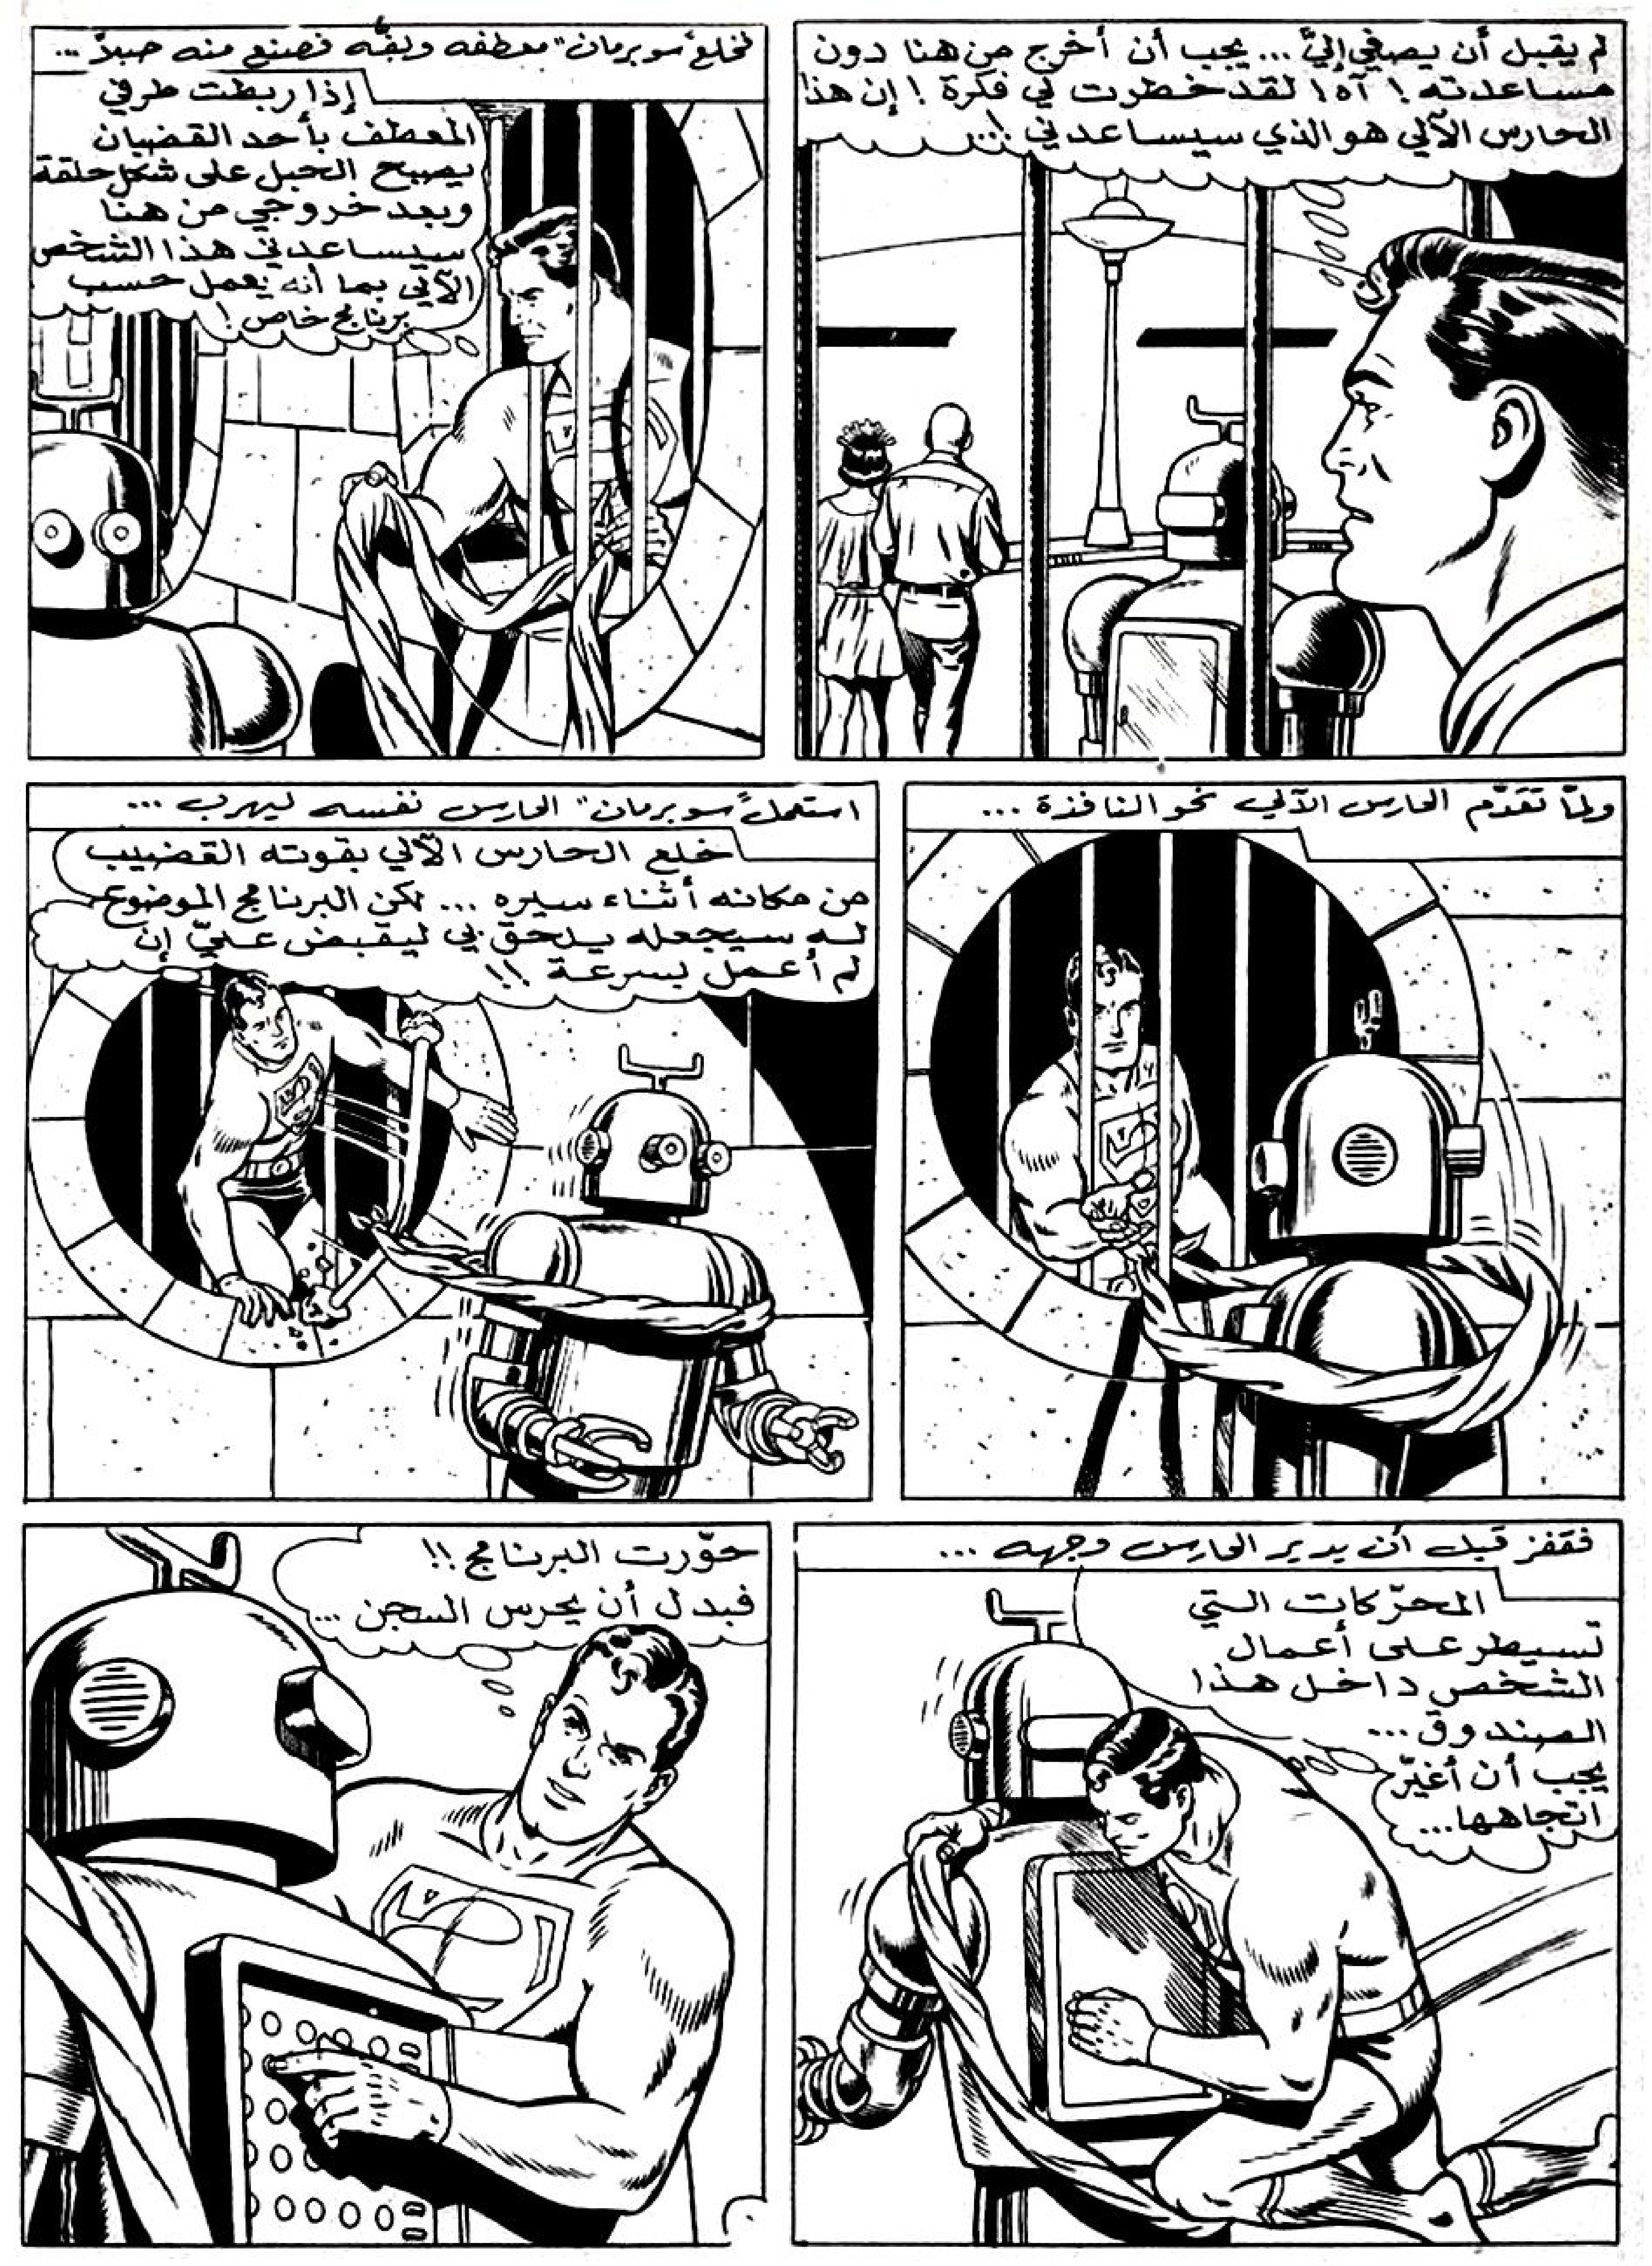 لم يقبل أن يصغي إليّ... يجب أن أخرج من هنا دون
مساعدته! آه! لقد خطرت لي فكرة! إن هذا
الحارس الآلي هو الذي سيساعدني!...
فخلع "سوبرمان" معطفه ولفّه فصنع منه حبلاً...
إذا ربطت طرفي
المعطف بأحد القضبان
يصبح الحبل على شكل حلقة
وبعد خروجي من هنا
سيساعدني هذا الشخص
الآلي بما أنه يعمل حسب
برنامج خاص!
ولمّا تقدّم الحارس الآلي نحو النافذة...
استعمل "سوبرمان" الحارس نفسه ليهرب...
خلع الحارس الآلي بقوته القضيب
من مكانه أثناء سيره... لكن البرنامج الموضوع
له سيجعله يلحق بي ليقبض عليّ إن
لم أعمل بسرعة!!
فقفز قبل أن يدير الحارس وجهه...
المحرّكات التي
تسيطر على أعمال
الشخص داخل هذا
الصندوق...
يجب أن أغيّر
اتجاهها...
حوّرت البرنامج!!
فبدل أن يحرس السجن...